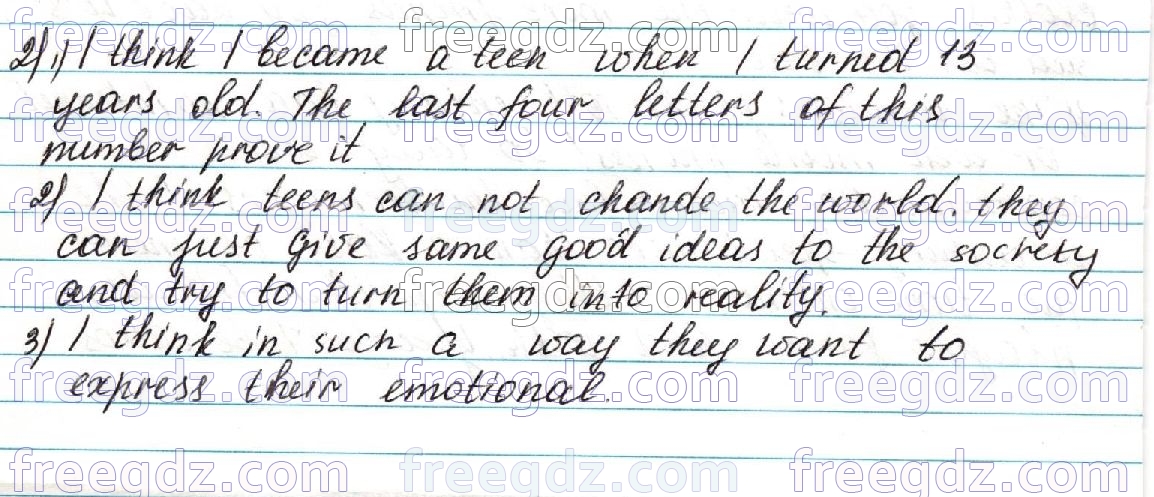 freegdz.com freegdz.com freegdz.com
2) 1) I think I became a teen when I turned 13
years old. The last four letters of this
freegdz.com freegdz.com freegdz.com
number prove it
2) I think teens can not chande the world. they
freegdz.com freegdz.com freegdz.com
can just give same good ideas to the society
and try to turn them into reality.
freegdz.com freegdz.com freegdz.com
3) I think in such a way they want to
express their emotional.
freegdz.com freegdz.com freegdz.com
freegdz.com freegdz.com freegdz.com